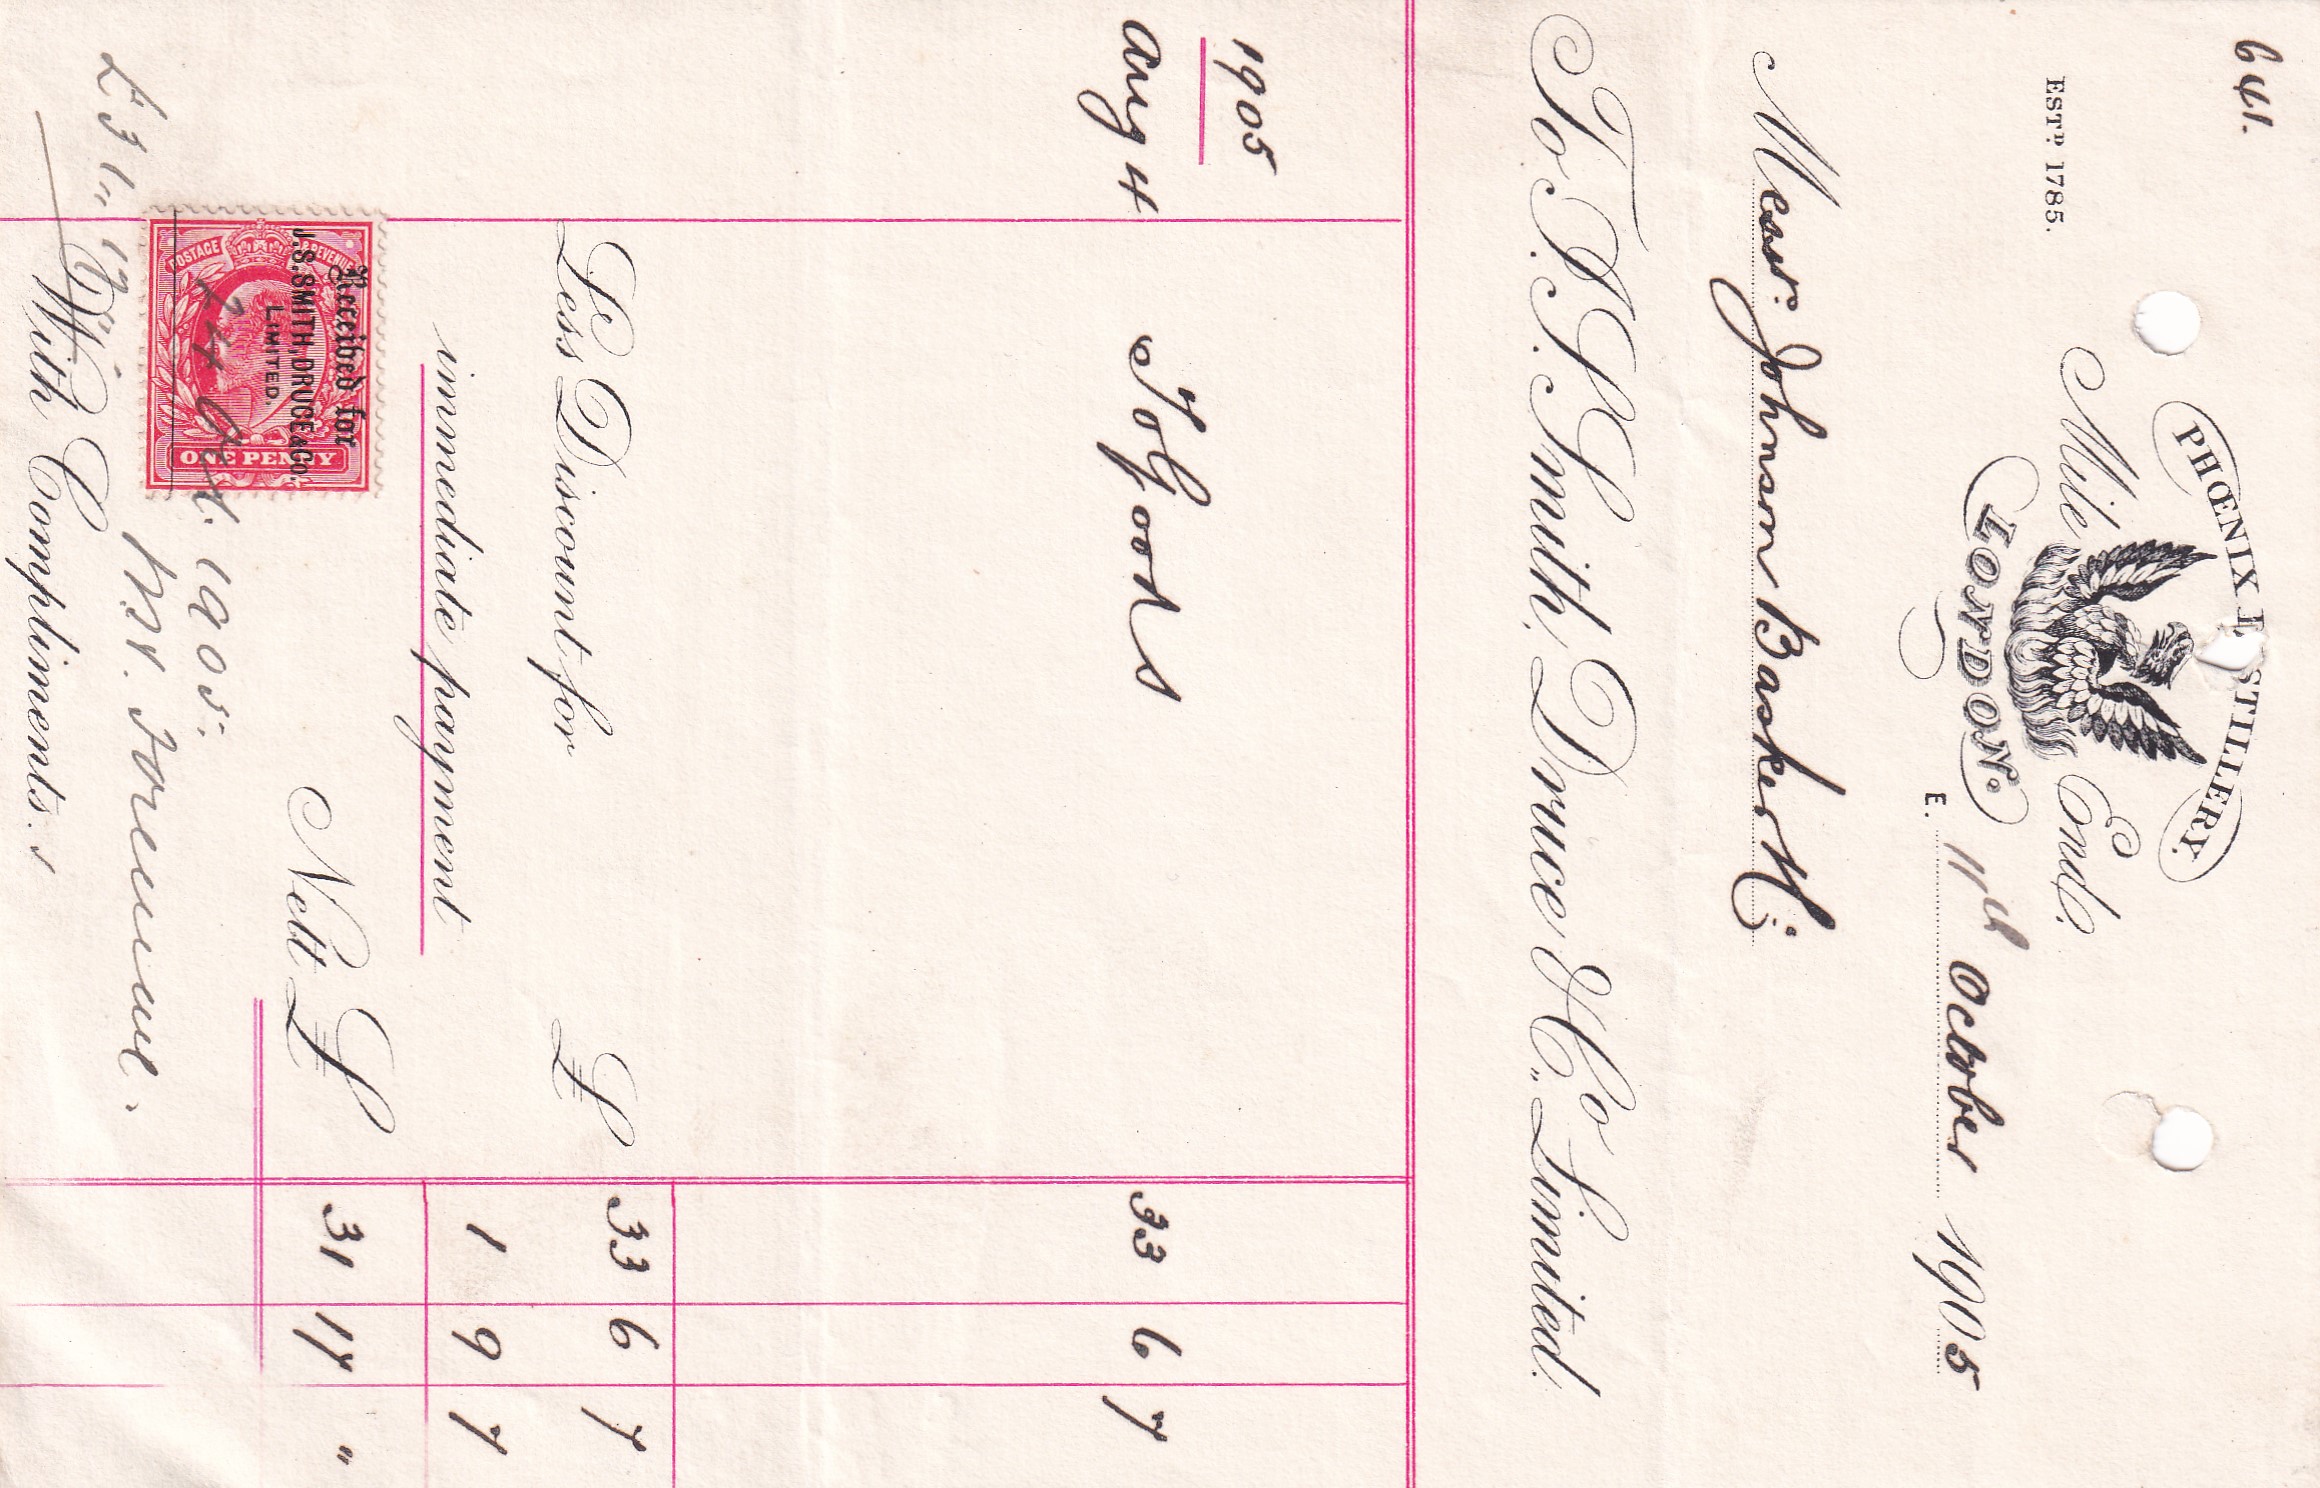 641.
PHŒNIX DISTILLERY.
ESTD. 1785.
Mile End.
LONDON.
E. 11th October 1905
Messrs Johnson Basker &
To J. S. Smith, Druce & Co. Limited.
1905
Aug 4 To Goods 33 6 7
Less Discount for £ 33 6 7
immediate payment 1 9 7
Nett £ 31 17 "
Received for
J.S. SMITH, DRUCE & CO.
LIMITED.
POSTAGE & REVENUE
ONE PENNY
24 Oct. 1905.
£31"17"
With Compliments.